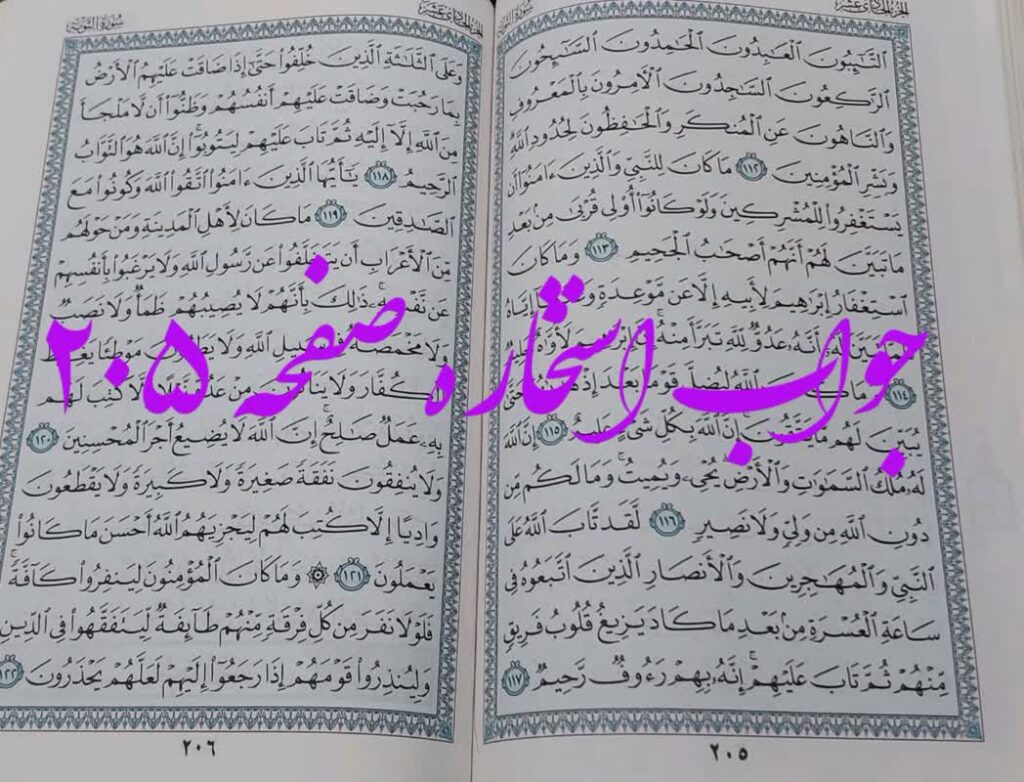 الجزء الحادي عشر
سورة التوبة
ٱلتَّٰٓئِبُونَ ٱلۡعَٰبِدُونَ ٱلۡحَٰمِدُونَ ٱلسَّٰٓئِحُونَ
ٱلرَّٰكِعُونَ ٱلسَّٰجِدُونَ ٱلۡأٓمِرُونَ بِٱلۡمَعۡرُوفِ
وَٱلنَّاهُونَ عَنِ ٱلۡمُنكَرِ وَٱلۡحَٰفِظُونَ لِحُدُودِ ٱللَّهِۗ
وَبَشِّرِ ٱلۡمُؤۡمِنِينَ ١١٢ مَا كَانَ لِلنَّبِيِّ وَٱلَّذِينَ ءَامَنُوٓاْ أَن
يَسۡتَغۡفِرُواْ لِلۡمُشۡرِكِينَ وَلَوۡ كَانُوٓاْ أُوْلِي قُرۡبَىٰ مِنۢ بَعۡدِ
مَا تَبَيَّنَ لَهُمۡ أَنَّهُمۡ أَصۡحَٰبُ ٱلۡجَحِيمِ ١١٣ وَمَا كَانَ
ٱسۡتِغۡفَارُ إِبۡرَٰهِيمَ لِأَبِيهِ إِلَّا عَن مَّوۡعِدَةٖ وَعَدَهَآ إِيَّاهُ
فَلَمَّا تَبَيَّنَ لَهُۥٓ أَنَّهُۥ عَدُوّٞ لِّلَّهِ تَبَرَّأَ مِنۡهُۚ إِنَّ إِبۡرَٰهِيمَ لَأَوَّٰهٌ حَلِيمٞ
١١٤ وَمَا كَانَ ٱللَّهُ لِيُضِلَّ قَوۡمَۢا بَعۡدَ إِذۡ هَدَىٰهُمۡ حَتَّىٰ
يُبَيِّنَ لَهُم مَّا يَتَّقُونَۚ إِنَّ ٱللَّهَ بِكُلِّ شَيۡءٍ عَلِيمٌ ١١٥ إِنَّ ٱللَّهَ
لَهُۥ مُلۡكُ ٱلسَّمَٰوَٰتِ وَٱلۡأَرۡضِۖ يُحۡيِۦ وَيُمِيتُۚ وَمَا لَكُم مِّن
دُونِ ٱللَّهِ مِن وَلِيّٖ وَلَا نَصِيرٖ ١١٦ لَّقَد تَّابَ ٱللَّهُ عَلَى
ٱلنَّبِيِّ وَٱلۡمُهَٰجِرِينَ وَٱلۡأَنصَارِ ٱلَّذِينَ ٱتَّبَعُوهُ فِي
سَاعَةِ ٱلۡعُسۡرَةِ مِنۢ بَعۡدِ مَا كَادَ يَزِيغُ قُلُوبُ فَرِيقٖ
مِّنۡهُمۡ ثُمَّ تَابَ عَلَيۡهِمۡۚ إِنَّهُۥ بِهِمۡ رَءُوفٞ رَّحِيمٞ ١١٧
٢٠٥
الجزء الحادي عشر
سورة التوبة
وَعَلَى ٱلثَّلَٰثَةِ ٱلَّذِينَ خُلِّفُواْ حَتَّىٰٓ إِذَا ضَاقَتۡ عَلَيۡهِمُ ٱلۡأَرۡضُ
بِمَا رَحُبَتۡ وَضَاقَتۡ عَلَيۡهِمۡ أَنفُسُهُمۡ وَظَنُّوٓاْ أَن لَّا مَلۡجَأَ
مِنَ ٱللَّهِ إِلَّآ إِلَيۡهِ ثُمَّ تَابَ عَلَيۡهِمۡ لِيَتُوبُوٓاْۚ إِنَّ ٱللَّهَ هُوَ ٱلتَّوَّابُ
ٱلرَّحِيمُ ١١٨ يَٰٓأَيُّهَا ٱلَّذِينَ ءَامَنُواْ ٱتَّقُواْ ٱللَّهَ وَكُونُواْ مَعَ
ٱلصَّٰدِقِينَ ١١٩ مَا كَانَ لِأَهۡلِ ٱلۡمَدِينَةِ وَمَنۡ حَوۡلَهُم
مِّنَ ٱلۡأَعۡرَابِ أَن يَتَخَلَّفُواْ عَن رَّسُولِ ٱللَّهِ وَلَا يَرۡغَبُواْ بِأَنفُسِهِمۡ
عَن نَّفۡسِهِۦۚ ذَٰلِكَ بِأَنَّهُمۡ لَا يُصِيبُهُمۡ ظَمَأٞ وَلَا نَصَبٞ
وَلَا مَخۡمَصَةٞ فِي سَبِيلِ ٱللَّهِ وَلَا يَطَـُٔونَ مَوۡطِئٗا يَغِيظُ
ٱلۡكُفَّارَ وَلَا يَنَالُونَ مِنۡ عَدُوّٖ نَّيۡلًا إِلَّا كُتِبَ لَهُم
بِهِۦ عَمَلٞ صَٰلِحٌۚ إِنَّ ٱللَّهَ لَا يُضِيعُ أَجۡرَ ٱلۡمُحۡسِنِينَ ١٢٠
وَلَا يُنفِقُونَ نَفَقَةٗ صَغِيرَةٗ وَلَا كَبِيرَةٗ وَلَا يَقۡطَعُونَ
وَادِيًا إِلَّا كُتِبَ لَهُمۡ لِيَجۡزِيَهُمُ ٱللَّهُ أَحۡسَنَ مَا كَانُواْ
يَعۡمَلُونَ ١٢١ ۞ وَمَا كَانَ ٱلۡمُؤۡمِنُونَ لِيَنفِرُواْ كَآفَّةٗۚ
فَلَوۡلَا نَفَرَ مِن كُلِّ فِرۡقَةٖ مِّنۡهُمۡ طَآئِفَةٞ لِّيَتَفَقَّهُواْ فِي ٱلدِّينِ
وَلِيُنذِرُواْ قَوۡمَهُمۡ إِذَا رَجَعُوٓاْ إِلَيۡهِمۡ لَعَلَّهُمۡ يَحۡذَرُونَ ١٢٢
٢٠٦
جواب استخاره صفحه ۲۰۵